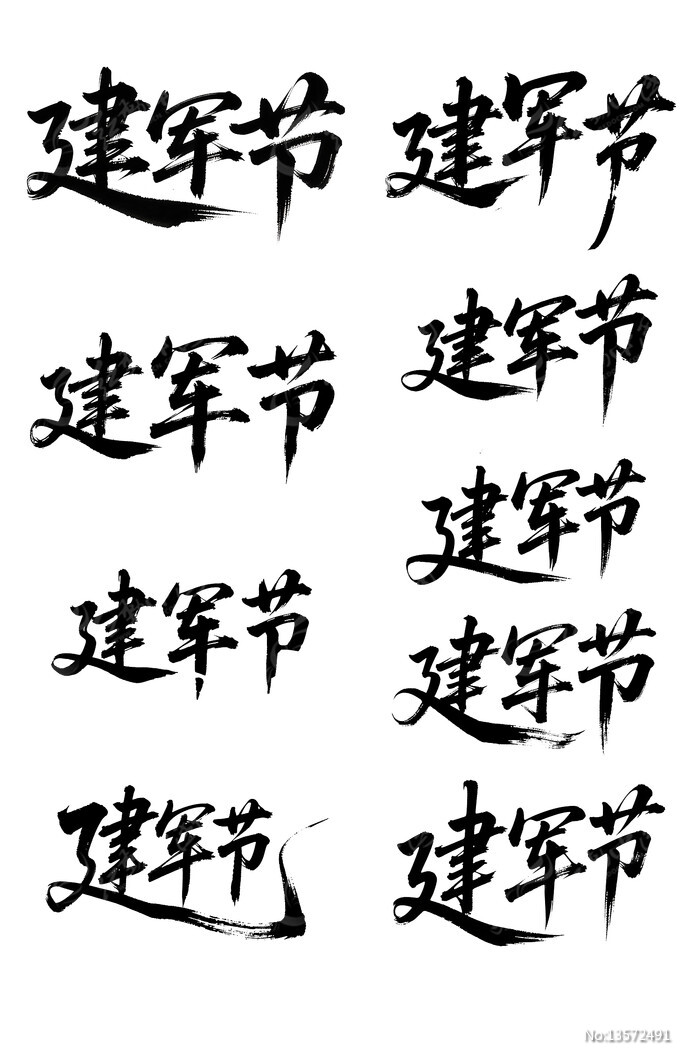 建军节
建军节
建军节
建军节
建军节
建军节
建军节
建军节
建军节
No:13572491